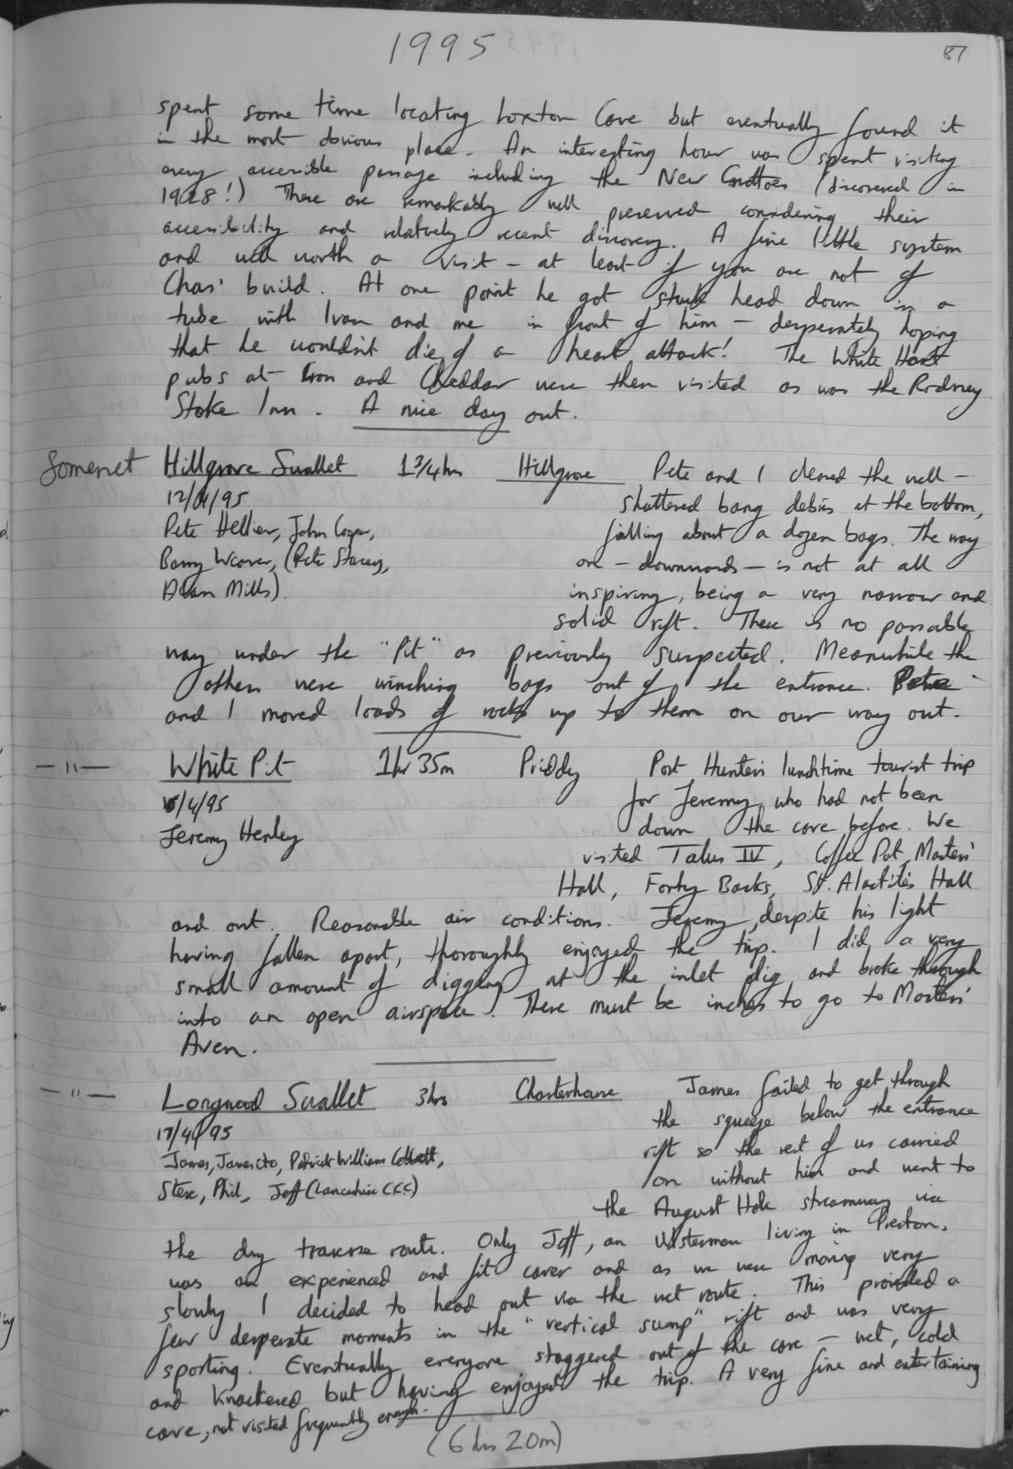 1995
87
spent some time locating Loxton Cave but eventually found it
in the most obvious place. An interesting hour was spent visiting
every accessible passage including the New Grottoes (discovered in
1928!) These are remarkably well preserved considering their
accessibility and relatively recent discovery. A fine little system
and well worth a visit - at least if you are not of
Chas' build. At one point he got stuck head down in a
tube with Ivan and me in front of him - desperately hoping
that he wouldn't die of a heart attack! The White Hart
pubs at and Cheddar were then visited as was the Rodney
Stoke Inn. A nice day out.
Somerset Hillgrove Swallet 1¾hrs Hillgrove Pete and I cleared the well-
12/4/95 shattered bang debris at the bottom,
Pete Hellier, John
filling about a dozen bags. The way
Barry Weaver, (Pete Stacey, on - downwards - is not at all
Alan Mills). inspiring, being a very narrow and
solid rift. There is no passable
way under the "Pit" as previously suspected. Meanwhile the
others were winching bags out of the entrance. Pete
and I moved loads of rocks up to them on our way out.
-"- White Pit 1hr 35m Priddy Post Hunters' lunchtime tourist trip
/4/95 for Jeremy, who had not been
Jeremy Henley down the cave before. We
visited Talus IV, Coffee Pot, Masters'
Hall, Forty Backs, St. Alactites Hall
and out. Reasonable air conditions. Jeremy, despite his light
having fallen apart, thoroughly enjoyed the trip. I did a very
small amount of digging at the inlet dig and broke through
into an open airspace. There must be inches to go to Masters'
Aven.
-"- Longwood Swallet 3hrs Charterhouse James failed to get through
17/4/95 the squeeze below the entrance
James, James Patrick William
rift so the rest of us carried
on without him and went to
Steve, Phil, Joff (Lancashire CCC)
the August Hole streamway via
the dry traverse route. Only Joff, an Ulsterman living in Preston,
was an experienced and fit caver and as we were moving very
slowly I decided to head out via the wet route. This provided a
few desperate moments in the "vertical sump" rift and was very
sporting. Eventually everyone staggered out of the cave - wet, cold
and knackered but having enjoyed the trip. A very fine and entertaining
cave, not visited frequently enough.
(6 hrs 20m)